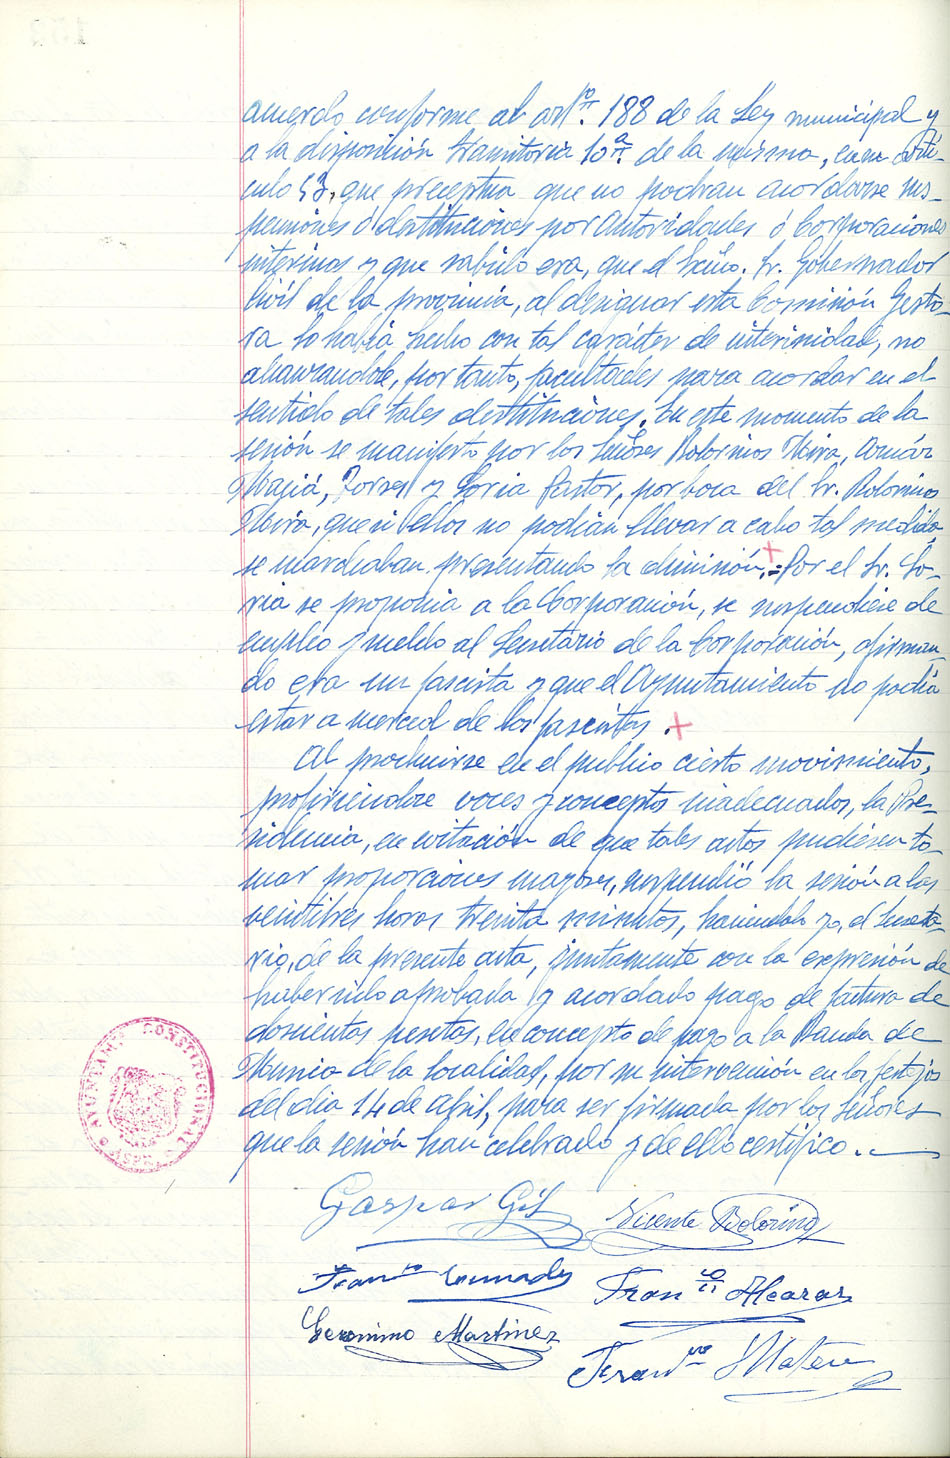 acuerdo conforme al artº. 188 de la Ley municipal y
a la disposición transitoria 10ª. de la misma, en su artí-
culo 53, que preceptua que no podran acordarse sus-
pensiones ó destituciones por Autoridades ó Corporaciones
interinas y que sabido era, que el Excmo. Sr. Gobernador
Civil de la provincia, al designar esta Comisión Gesto-
ra lo había hecho con tal carácter de interinidad, no
alcanzandole, por tanto, facultades para acordar en el
sentido de tales destituciones. En este momento de la
sesión se manifestó por los Señores Bolorinos Mira, Aznar
Maciá, Torres y Soria Pastor, por boca del Sr. Bolorinos
Mira, que si ellos no podian llevar a cabo tal medida,
se marchaban presentando la dimisión.= Por el Sr. So-
ria se proponia a la Corporación, se suspendiese de
empleo y sueldo al Secretario de la Corporación, afirman-
do era un fascista y que el Ayuntamiento no podia
estar a merced de los fascistas.
Al producirse en el publico cierto movimiento,
profiriendose voces y conceptos inadecuados, la Pre-
sidencia, en evitación de que tales actos pudiesen to-
mar proporciones mayores, suspendió la sesión a las
veintitres horas treinta minutos, haciendolo yo, el Secreta-
rio, de la presente acta, juntamente con la expresión de
haber sido aprobada y acordado pago de factura de
doscientas pesetas, en concepto de pago a la Banda de
Musica de la localidad, por su intervención en los festejos
del dia 14 de abril, para ser firmada por los Señores
que la sesión han celebrado y de ello certifico.
AYUNTAMº CONSTITUCIONAL
ASPE
Gaspar Gil
Vicente Bolorinos
Franco
Franco Alcaraz
Geronimo Martinez
Franco Mateu